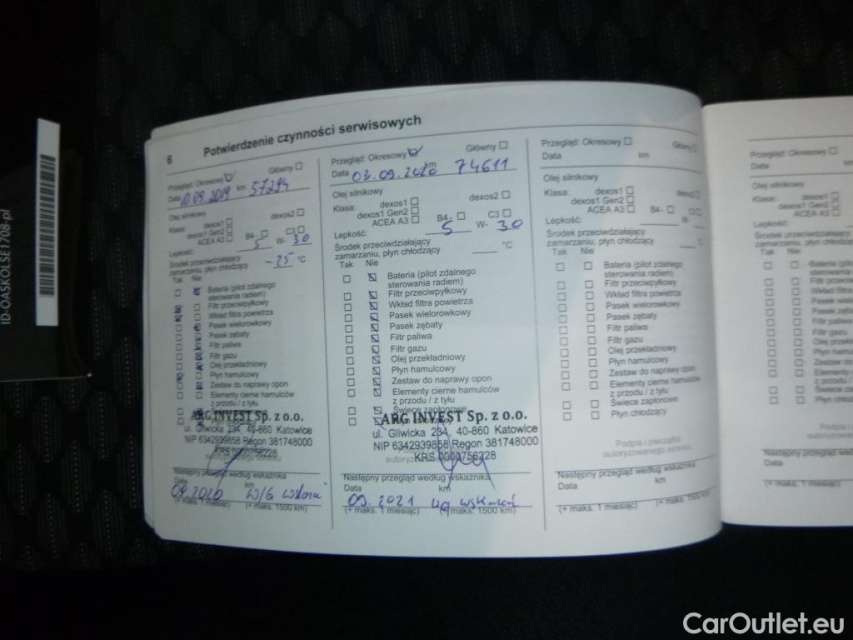 ID-OASKOLSE1708-pl
6 Potwierdzenie czynności serwisowych
Przegląd: Okresowy Główny
Data 10.09.2019 km 57294
Olej silnikowy
Klasa: dexos1 dexos2
dexos1 Gen2
ACEA A3 B4- C3
Lepkość: 5 W- 30
Środek przeciwdziałający
zamarzaniu, płyn chłodzący -25 °C
Tak Nie
Bateria (pilot zdalnego
sterowania radiem)
Filtr przeciwpyłkowy
Wkład filtra powietrza
Pasek wielorowkowy
Pasek zębaty
Filtr paliwa
Filtr gazu
Olej przekładniowy
Płyn hamulcowy
Zestaw do naprawy opon
Elementy cierne hamulców
z przodu / z tyłu
ARG INVEST Sp. z o.o.
ul. Gliwicka 234, 40-860 Katowice
NIP 6342939858 Regon 381748000
Następny przegląd według wskaźnika
Data km
09.2020 W/G
(+ maks. 1 miesiąc) (+ maks. 1500 km)
Przegląd: Okresowy Główny
Data 03.09.2020 km 74611
Olej silnikowy
Klasa: dexos1 dexos2
dexos1 Gen2
ACEA A3 B4- C3
Lepkość: 5 W- 30
Środek przeciwdziałający
zamarzaniu, płyn chłodzący °C
Tak Nie
Bateria (pilot zdalnego
sterowania radiem)
Filtr przeciwpyłkowy
Wkład filtra powietrza
Pasek wielorowkowy
Pasek zębaty
Filtr paliwa
Filtr gazu
Olej przekładniowy
Płyn hamulcowy
Zestaw do naprawy opon
Elementy cierne hamulców
z przodu / z tyłu
Świece zapłonowe
ARG INVEST Sp. z o.o.
ul. Gliwicka 234, 40-860 Katowice
NIP 6342939858 Regon 381748000
KRS 0000756228
Następny przegląd według wskaźnika
Data km
09.2021 wg wskazań
(+ maks. 1 miesiąc) (+ maks. 1500 km)
Przegląd: Okresowy Główny
Data km
Olej silnikowy
Klasa: dexos1 dexos2
dexos1 Gen2
ACEA A3 B4- C3
Lepkość: W-
Środek przeciwdziałający
zamarzaniu, płyn chłodzący °C
Tak Nie
Bateria (pilot zdalnego
sterowania radiem)
Filtr przeciwpyłkowy
Wkład filtra powietrza
Pasek wielorowkowy
Pasek zębaty
Filtr paliwa
Filtr gazu
Olej przekładniowy
Płyn hamulcowy
Zestaw do naprawy opon
Elementy cierne hamulców
z przodu / z tyłu
Świece zapłonowe
Płyn chłodzący
Podpis i pieczątka
autoryzowanego serwisu
Następny przegląd według wskaźnika
Data km
(+ maks. 1 miesiąc) (+ maks. 1500 km)
Przegląd: Okresowy
Data km
Olej silnikowy
Klasa: dexos1
dexos1 Gen2
ACEA A3
Lepkość:
Środek przeciwdziałający
zamarzaniu, płyn chłodzący
Tak Nie
Bateria (pilot
sterowania
Filtr
Wkład filtra
Pasek
Pasek
Filtr paliwa
Filtr gazu
Olej
Płyn
Zestaw do
Elementy
z przodu
Świece
Płyn
Następny przegląd według
Data
(+ maks. 1 miesiąc)
CarOutlet.eu